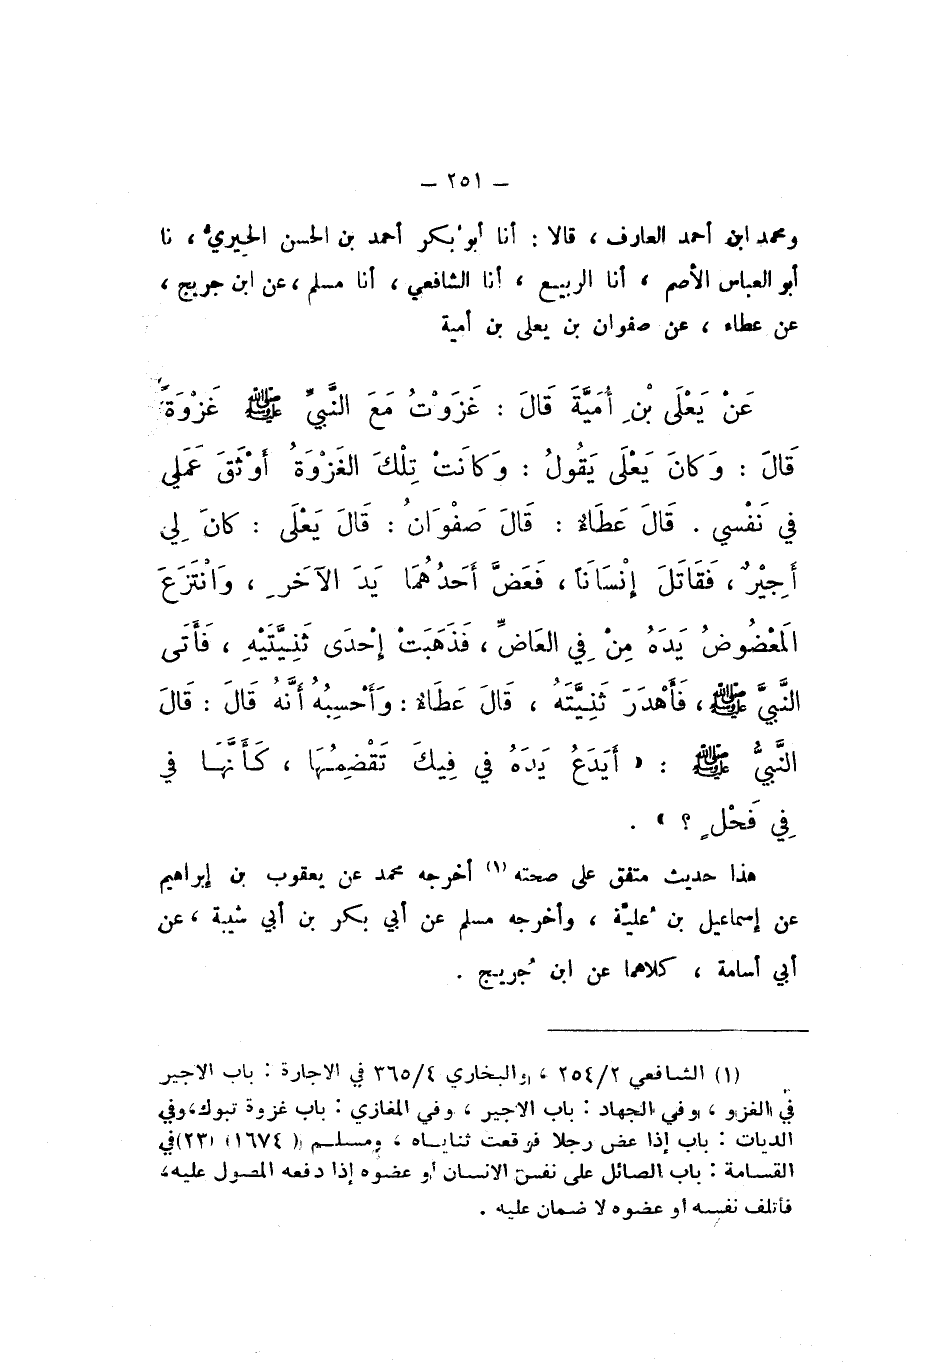 – ٢٥١ –
ومحمد ابن أحمد العارف ، قالا : أنا أبو بكر أحمد بن الحسن الحيري ، نا
أبو العباس الأصم ، أنا الربيع ، أنا الشافعي ، أنا مسلم ، عن ابن جريج ،
عن عطاء ، عن صفوان بن يعلى بن أمية
عَنْ يَعْلَى بْنِ أُمَيَّةَ قَالَ : غَزَوْتُ مَعَ النَّبِيِّ ﷺ غَزْوَةً
قَالَ : وَكَانَ يَعْلَى يَقُولُ : وَكَانَتْ تِلْكَ الغَزْوَةُ أَوْثَقَ عَمَلِي
فِي نَفْسِي . قَالَ عَطَاءٌ : قَالَ صَفْوَانُ : قَالَ يَعْلَى : كَانَ لِي
أَجِيْرٌ ، فَقَاتَلَ إِنْسَانَاً ، فَعَضَّ أَحَدُهُمَا يَدَ الآخَرِ ، وَانْتَزَعَ
المَعْضُوضُ يَدَهُ مِنْ فِي العَاضِّ ، فَذَهَبَتْ إِحْدَى ثَنِيَّتَيْهِ ، فَأَتَى
النَّبِيَّ ﷺ ، فَأَهْدَرَ ثَنِيَّتَهُ ، قَالَ عَطَاءٌ : وَأَحْسِبُهُ أَنَّهُ قَالَ : قَالَ
النَّبِيُّ ﷺ : « أَيَدَعُ يَدَهُ فِي فِيكَ تَقْضِمُهَا ، كَأَنَّهَا فِي
فِي فَحْلٍ ؟ » .
هذا حديث متفق على صحته (١) أخرجه محمد عن يعقوب بن إبراهيم
عن إسماعيل بن عُليَّة ، وأخرجه مسلم عن أبي بكر بن أبي شيبة ، عن
أبي أسامة ، كلاهما عن ابن جُريج .
(١) الشافعي ٢/٢٥٤ ، والبخاري ٤/٣٦٥ في الاجارة : باب الاجير
في الغزو ، وفي الجهاد : باب الاجير ، وفي المغازي : باب غزوة تبوك، وفي
الديات : باب إذا عض رجلا فوقعت ثناياه ، ومسلم ( ١٦٧٤) (٢٣) في
القسامة : باب الصائل على نفس الانسان أو عضوه إذا دفعه المصول عليه،
فأتلف نفسه أو عضوه لا ضمان عليه .